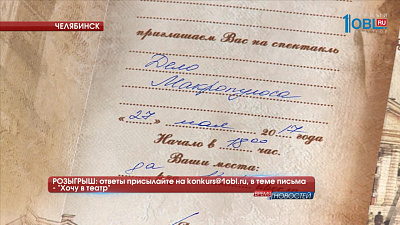 ЧЕЛЯБИНСК
1OBL.RU
приглашаем Вас на спектакль
Дело
Макропулоса
"27" мая 2017 года
Начало в 18 00 час.
Ваши места:
да
РОЗЫГРЫШ: ответы присылайте на konkurs@1obl.ru, в теме письма
- "Хочу в театр"
НОВОСТЕЙ